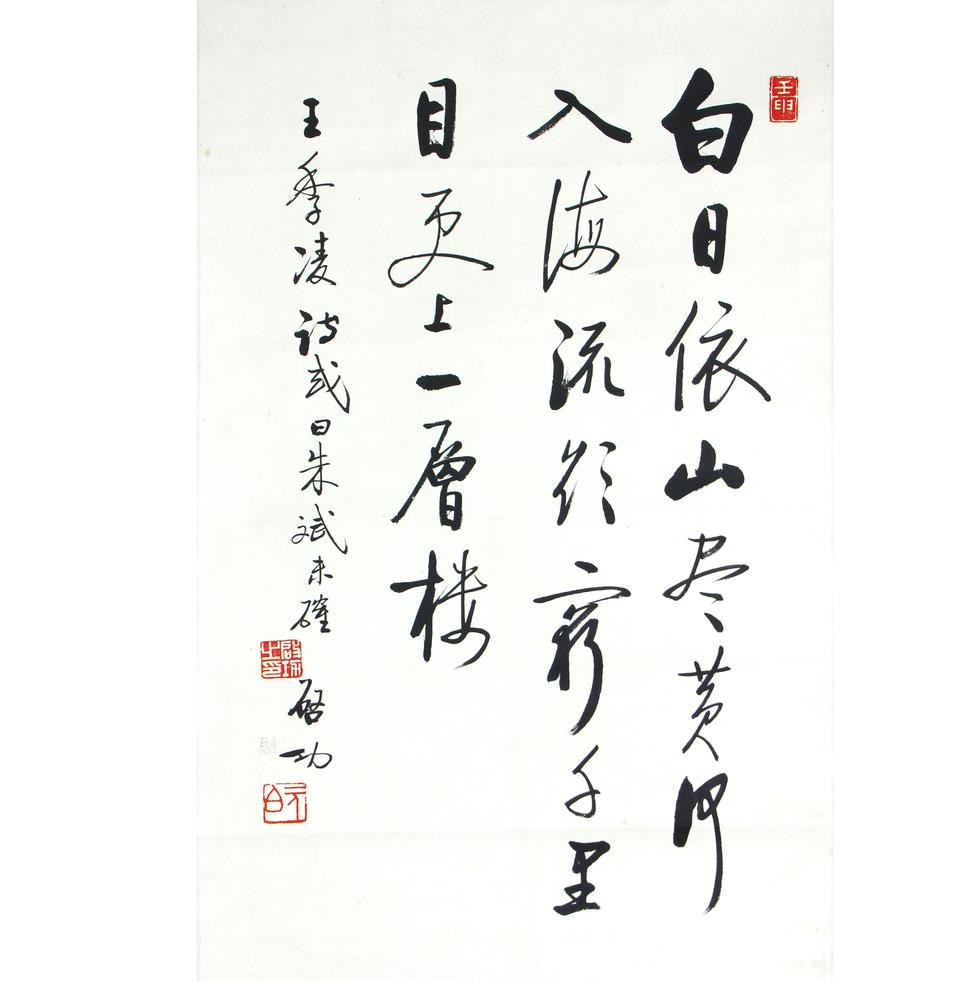 白日依山尽黄河
入海流欲穷千里
目更上一层楼
王季凌诗或曰朱斌未確
启功